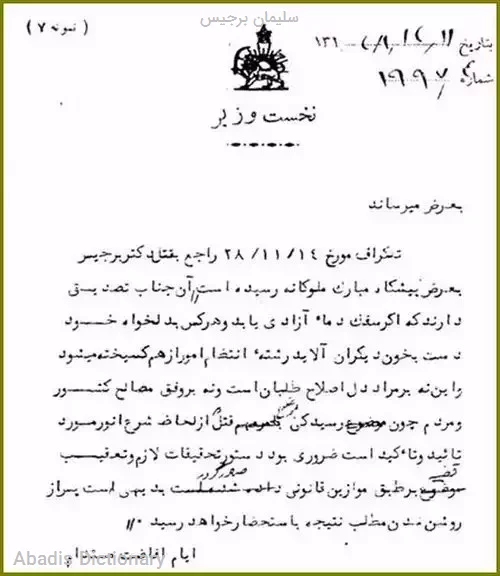 سلیمان برجیس
( نمونه ۷ )
بتاریخ
۱۳۱
شماره ۱۹۹۷
نخست وزیر
بعرض میرساند
تلگراف مورخ ۲۸/۱۱/۱۴ راجع بقتل دکتر برجیس
بعرض پیشگاه مبارک ملوکانه رسیده است آن جناب تصدیق
دارند که اگر سفک دماء آزادی یابد و هر کس بدلخواه خود
دست بخون دیگران آلاید رشته انتظام امور از هم گسیخته میشود
و این نه بر مراد دل اصلاح طلبان است و نه بر وفق مصالح کشور
و مردم چون موضوع رسیدگی قتل از لحاظ شرع انور مورد
تائید و تاکید است ضروری بود دستور تحقیقات لازم و تعقیب
قضیه صادر گردد
موضوع بر طبق موازین قانونی داده شده است بدیهی است پس از
روشن شدن مطلب نتیجه باستحضار خواهد رسید
ایام افاضت مستدام
Abadis Dictionary